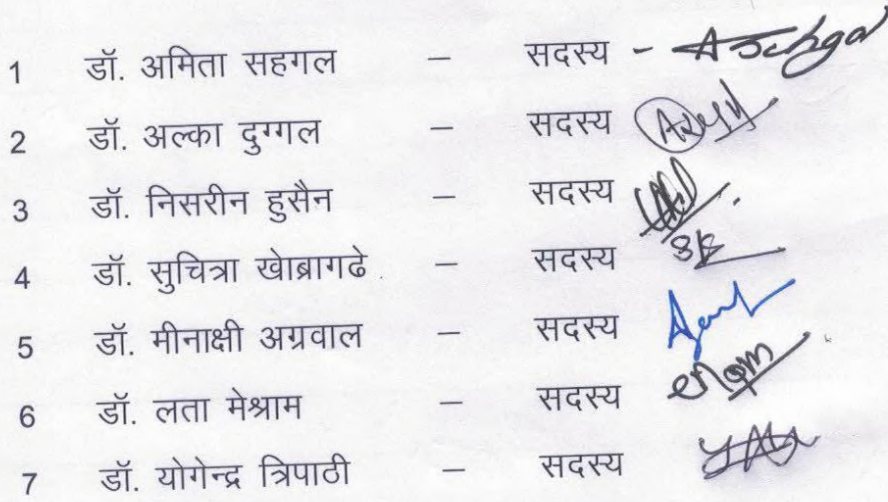 1 डॉ. अमिता सहगल – सदस्य - A Sehgal
2 डॉ. अल्का दुग्गल – सदस्य
3 डॉ. निसरीन हुसैन – सदस्य
4 डॉ. सुचित्रा खोब्रागढे – सदस्य
5 डॉ. मीनाक्षी अग्रवाल – सदस्य
6 डॉ. लता मेश्राम – सदस्य
7 डॉ. योगेन्द्र त्रिपाठी – सदस्य